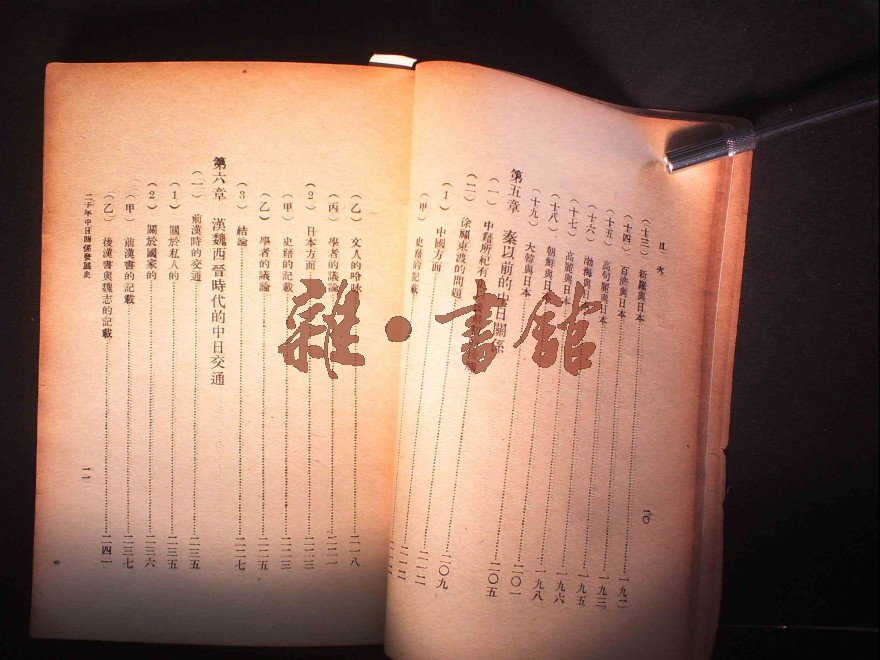 目次
(十三) 新羅與日本……一九二
(十四) 百濟與日本……一九三
(十五) 高句麗與日本……一九五
(十六) 渤海與日
(十七) 高麗與日本……一九六
(十八) 朝鮮與日……一九八
(十九) 大韓與日本……二〇一
第五章 秦以前的中日關係
(一) 中籍所紀有……二〇五
(二) 徐福東渡的問題……二〇九
(1) 中國方面……二一二
(甲) 史籍的記載……二一二
一〇
(乙) 文人的吟咏……二一八
(丙) 學者的議論……二二一
(2) 日本方面……二二三
(甲) 史籍的記載……二二三
(乙) 學者的議論……二二五
(3) 結論……二二七
第六章 漢魏西晉時代的中日交通
(一) 前漢時的交通……二三五
(1) 關於私人的……二三五
(2) 關於國家的……二三六
(甲) 前漢書的記載……二三七
(乙) 後漢書與魏志的記載……二四一
二千年中日關係發展史
一一
雜·書館